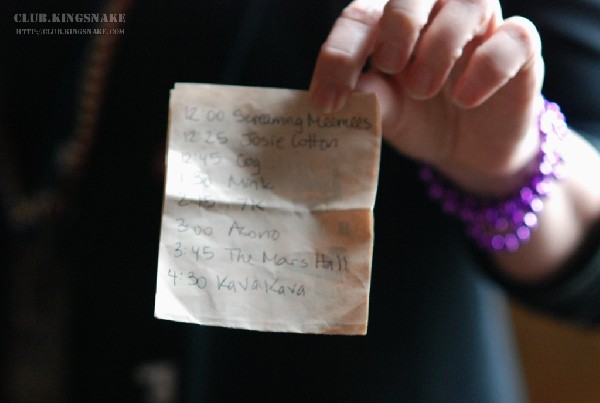 CLUB.KINGSNAKE
HTTP://CLUB.KINGSNAKE.COM
12:00 Screaming Meemees
12:25 Josie Cotton
12:45 Cog
1:30 Mink
2:15 7K
3:00 Acono
3:45 The Mars Hall
4:30 KavaKava